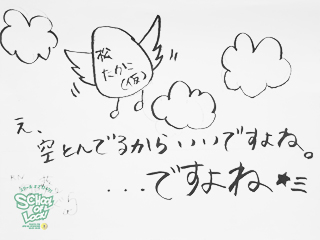 松
たかに
(仮)
え、
空とんでるからいいですよね。
...ですよね★ミ
SCHOOL
OF
LOCK!